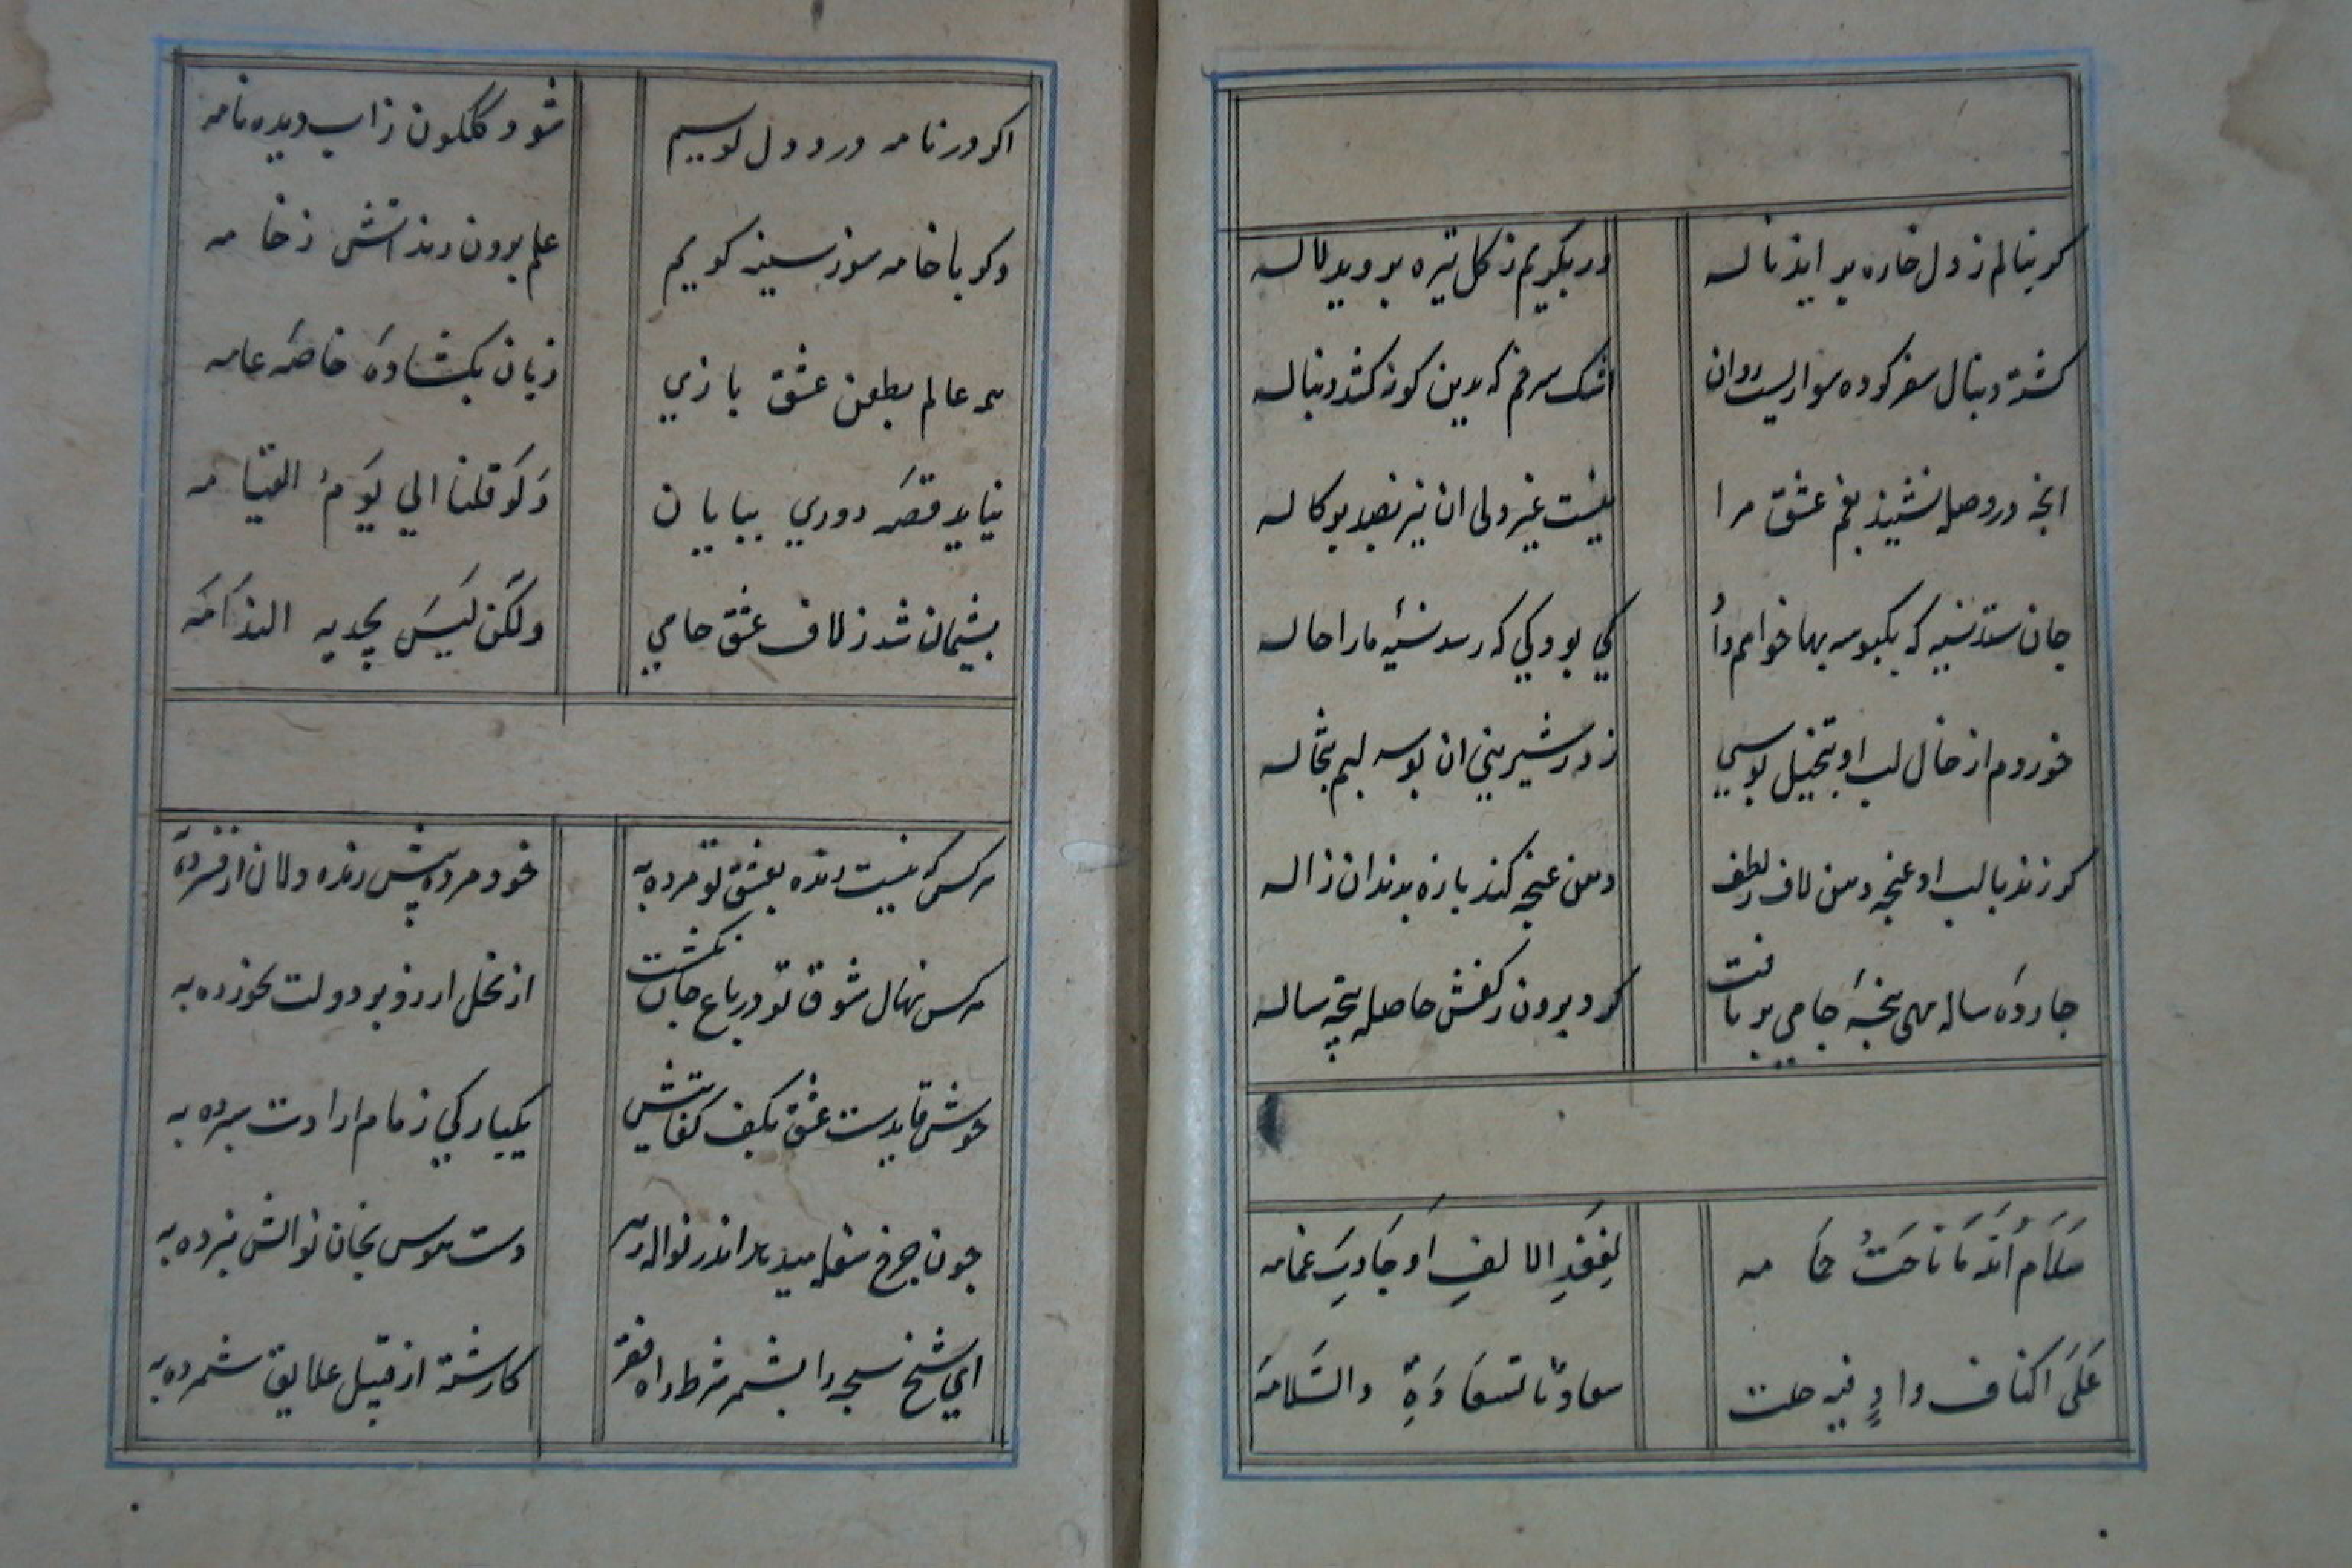 کر بنالم ز دل خاره بر اید ناله
ور بکریم ز کل تیره بروید لاله
کشته دنبال سفر کرده سواریست روان
اشک سرخم که بدین کونه کشد دنباله
انچه در وصله نشیند بغم عشق مرا
نیست غیر ولی ان نیز بصد پرکاله
جان ستد نسیه که یکبوسه بها خواهم داد
کی بود کی که رسد نسیه ما را حاله
خوردم از خال لب او بتخیل بوسی
زد ز شیرینی ان بوسه لبم تبخاله
کر زند با لب او غنچه دمی لاف ز لطف
دهن غنچه کند پاره بدندان ژاله
چارده ساله مهی پنجه جامی بر تافت
کرد بیرون ز کفش حاصل پنجه ساله
سَلَامُ اللّه مَا نَاحَتْ حَمَامه
لِفَقْدِ الالفِ اَو جَادَت غمامه
عَلَی اکناف وادٍ فیه حلت
سعادٌ بالسعَادَةِ والسَّلامَه
اکر در نامه درد دل نویسم
شود کلکون ز اب دیده نامه
وکر با خامه سوز سینه کویم
علم بیرون زند اتش ز خامه
همه عالم بطعن عشق بازی
زبان بکشاده خاصه عامه
نیاید قصه دوری بپایان
وَلَو قلنا الی یَومُ القیامه
پشیمان شد ز لاف عشق جامی
ولکن لَیسَ یجدیه الندَامَه
هر کس که نیست زنده بعشق تو مرده به
خود مرده پیش زنده دلان از فسرده به
هر کس نهال شوق تو در باغ جان نکشت
از نخل ارزو بر دولت نخورده به
خوش قایدست عشق بکف کفایتش
یکبارکی زمام ارادت سپرده به
چون چرخ سفله میدهد اندر نواله زهر
دست هوس بخان نوالش نبرده به
ای شیخ سبحه را بشمر شرط راه فقر
کار شته از قبیل علایق شمرده به